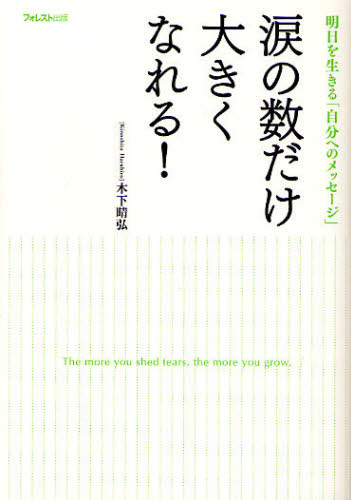 フォレスト出版
明日を生きる「自分へのメッセージ」
涙の数だけ
大きく
なれる!
[Kinoshita Haruhiro] 木下晴弘
The more you shed tears, the more you grow.